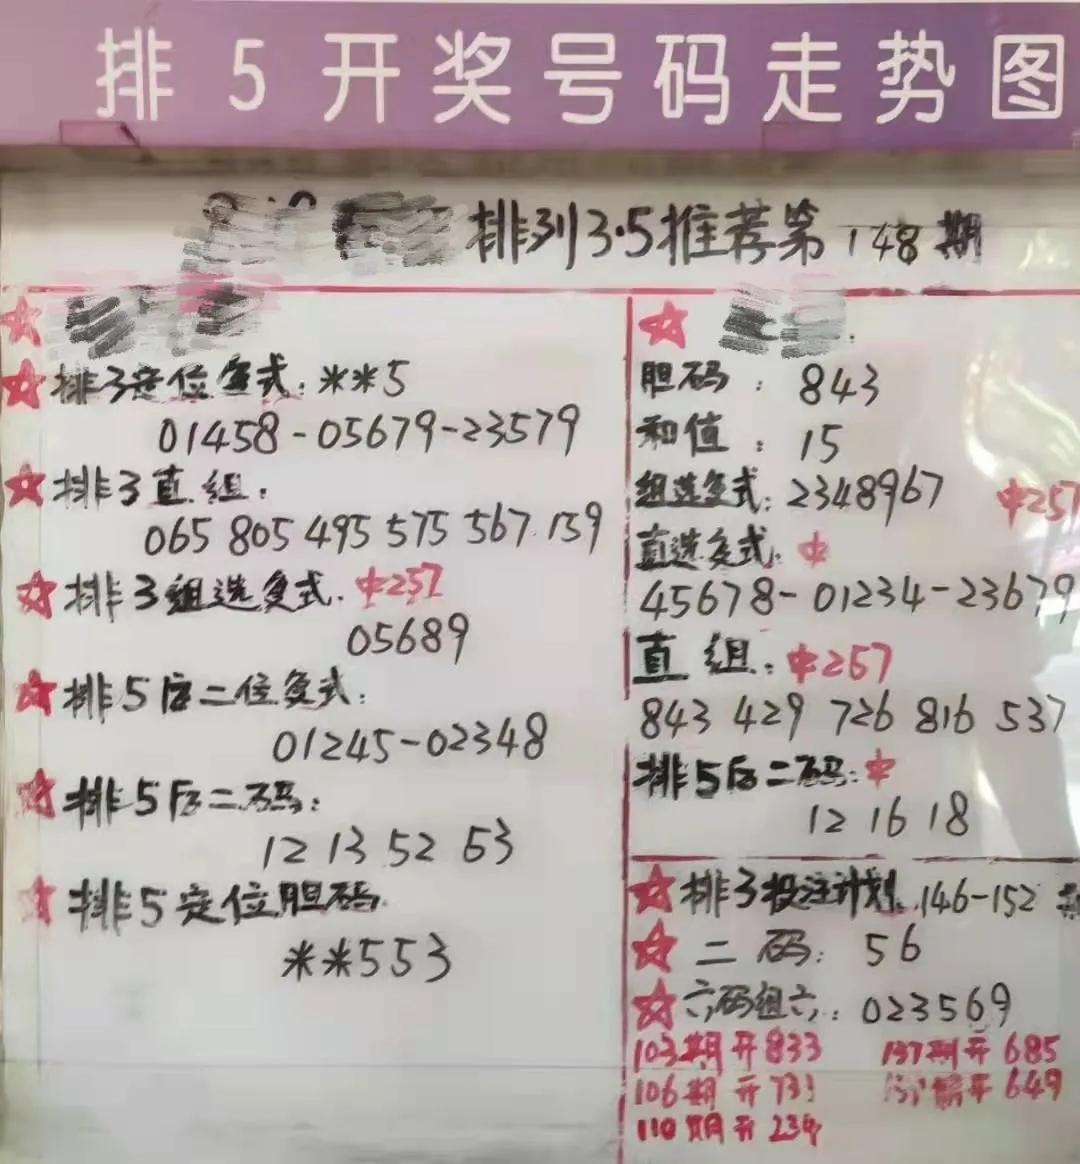 排5开奖号码走势图
排列3.5推荐第148期
排3定位复式:**5
01458-05679-23579
排3直.组:
065 805 495 575 567 159
排3组选复式.中257
05689
排5后二位复式:
01245-02348
排5后二码:
12 13 52 63
排5定位胆码
**553
胆码:843
和值:15
组选复式:2348967 中257
直选复式:中
45678-01234-23679
直 组:中257
843 429 726 816 537
排5后二码:中
12 16 18
排3投注计划.146-152
二码:56
六码组六:023569
103期开833 137期开685
106期开731 期开649
110期开239